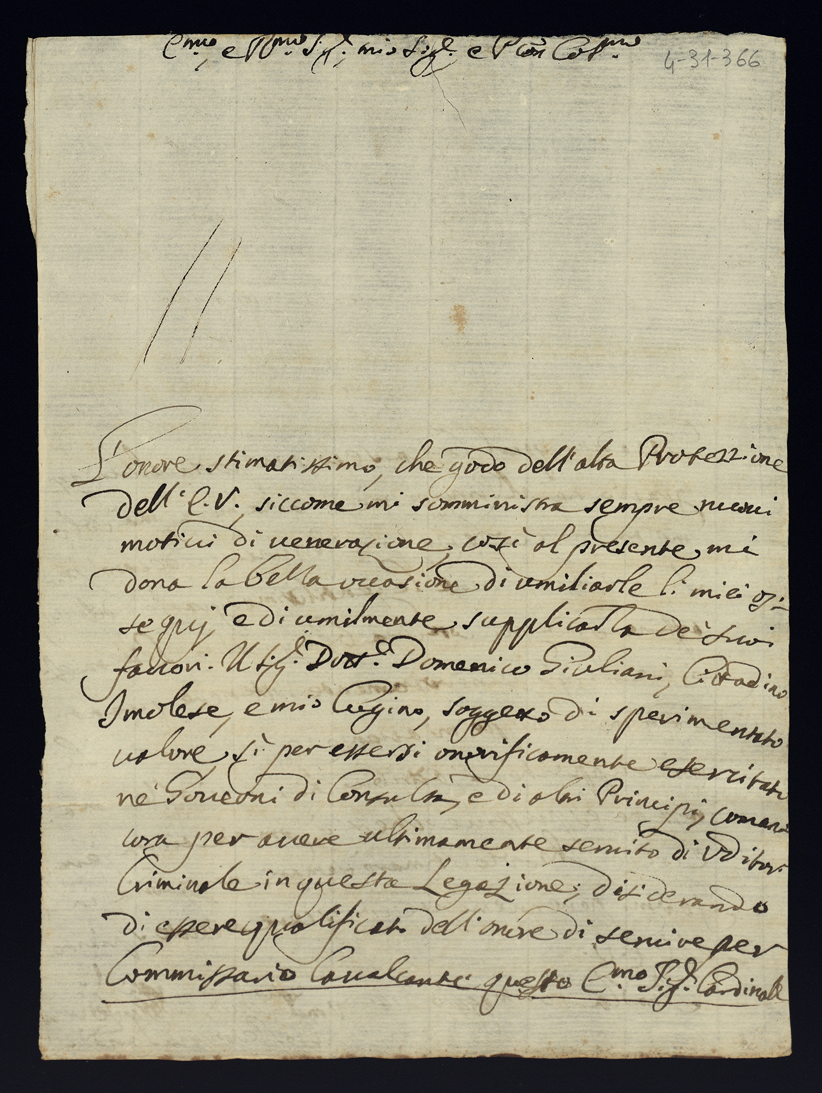 E.mo, e R.mo Sig.r, mio Sig.r e P.ron Col.mo
4-31-366
L'onore stimatissimo, che godo dell'alta Protezzione
dell'E.V., siccome mi somministra sempre nuoui
motiui di uenerazione, così al presente mi
dona la bella occasione di umiliarle li miei os=
sequj, e di umilmente supplicarla de' suoi
fauori. Il Sig.r Dott.e Domenico Giuliani, Cittadino
Imolese, e mio Cugino, soggetto di sperimentato
ualore, sì per essersi onorificamente esercitato
ne' Gouerni di Consulta, e di altri Principj, come an
cora per auere ultimamente seruito di Uditor
Criminale in questa Legazione; disiderando
di essere qualificato dell'onore di seruire per
Commissario Caualcante questo E.mo Sig.r Cardinale